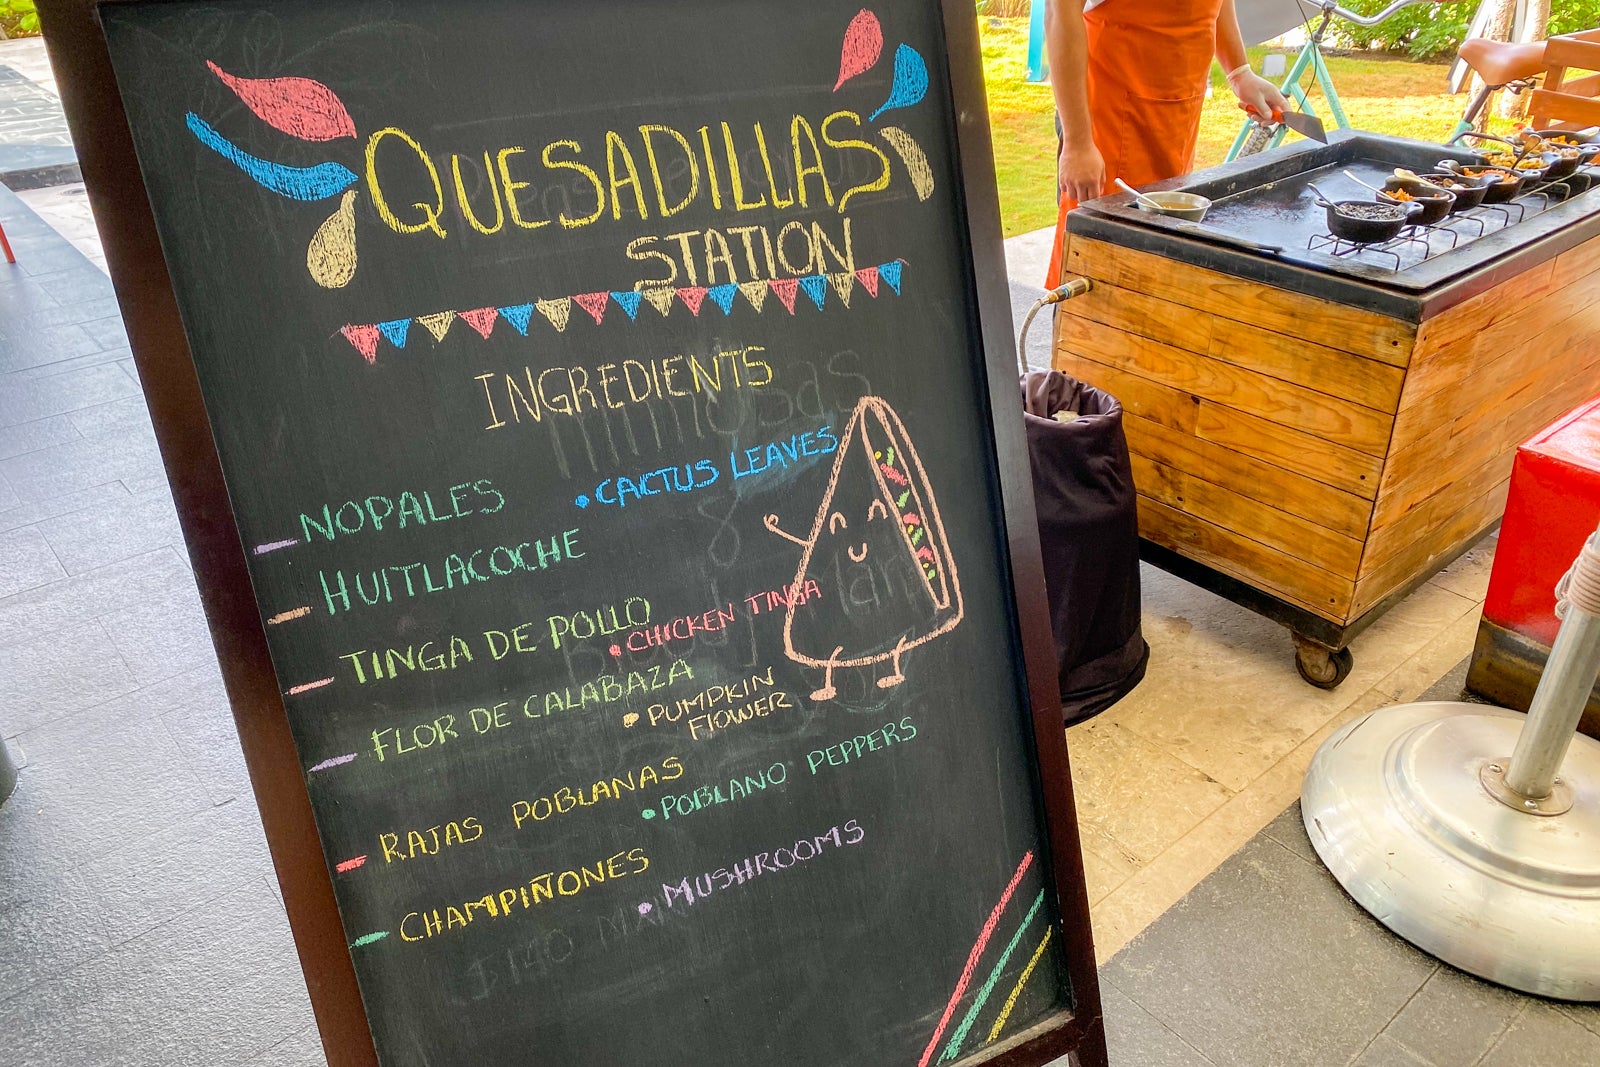 QUESADILLAS
STATION
INGREDIENTS
NOPALES
• CACTUS LEAVES
HUITLACOCHE
TINGA DE POLLO
• CHICKEN TINGA
FLOR DE CALABAZA
• PUMPKIN
FLOWER
RAJAS POBLANAS
• POBLANO PEPPERS
CHAMPIÑONES
• MUSHROOMS
$140
mimosas